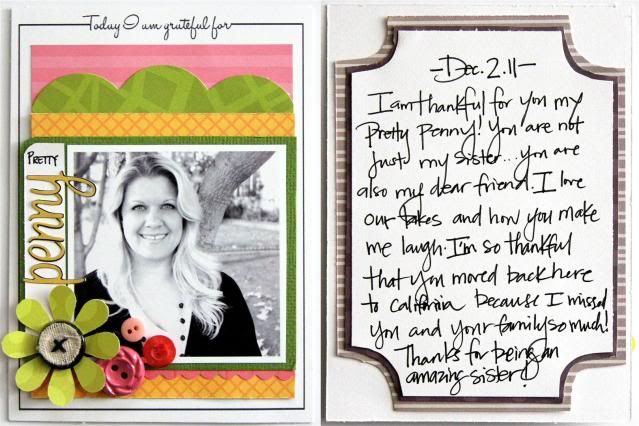 Today I am grateful for
PRETTY
penny
-Dec. 2. 11-
I am thankful for you my
Pretty Penny! You are not
just my sister... you are
also my dear friend. I love
our and how you make
me laugh. I'm so thankful
that you moved back here
to california because I missed
you and your family so much!
Thanks for being an
amazing sister!